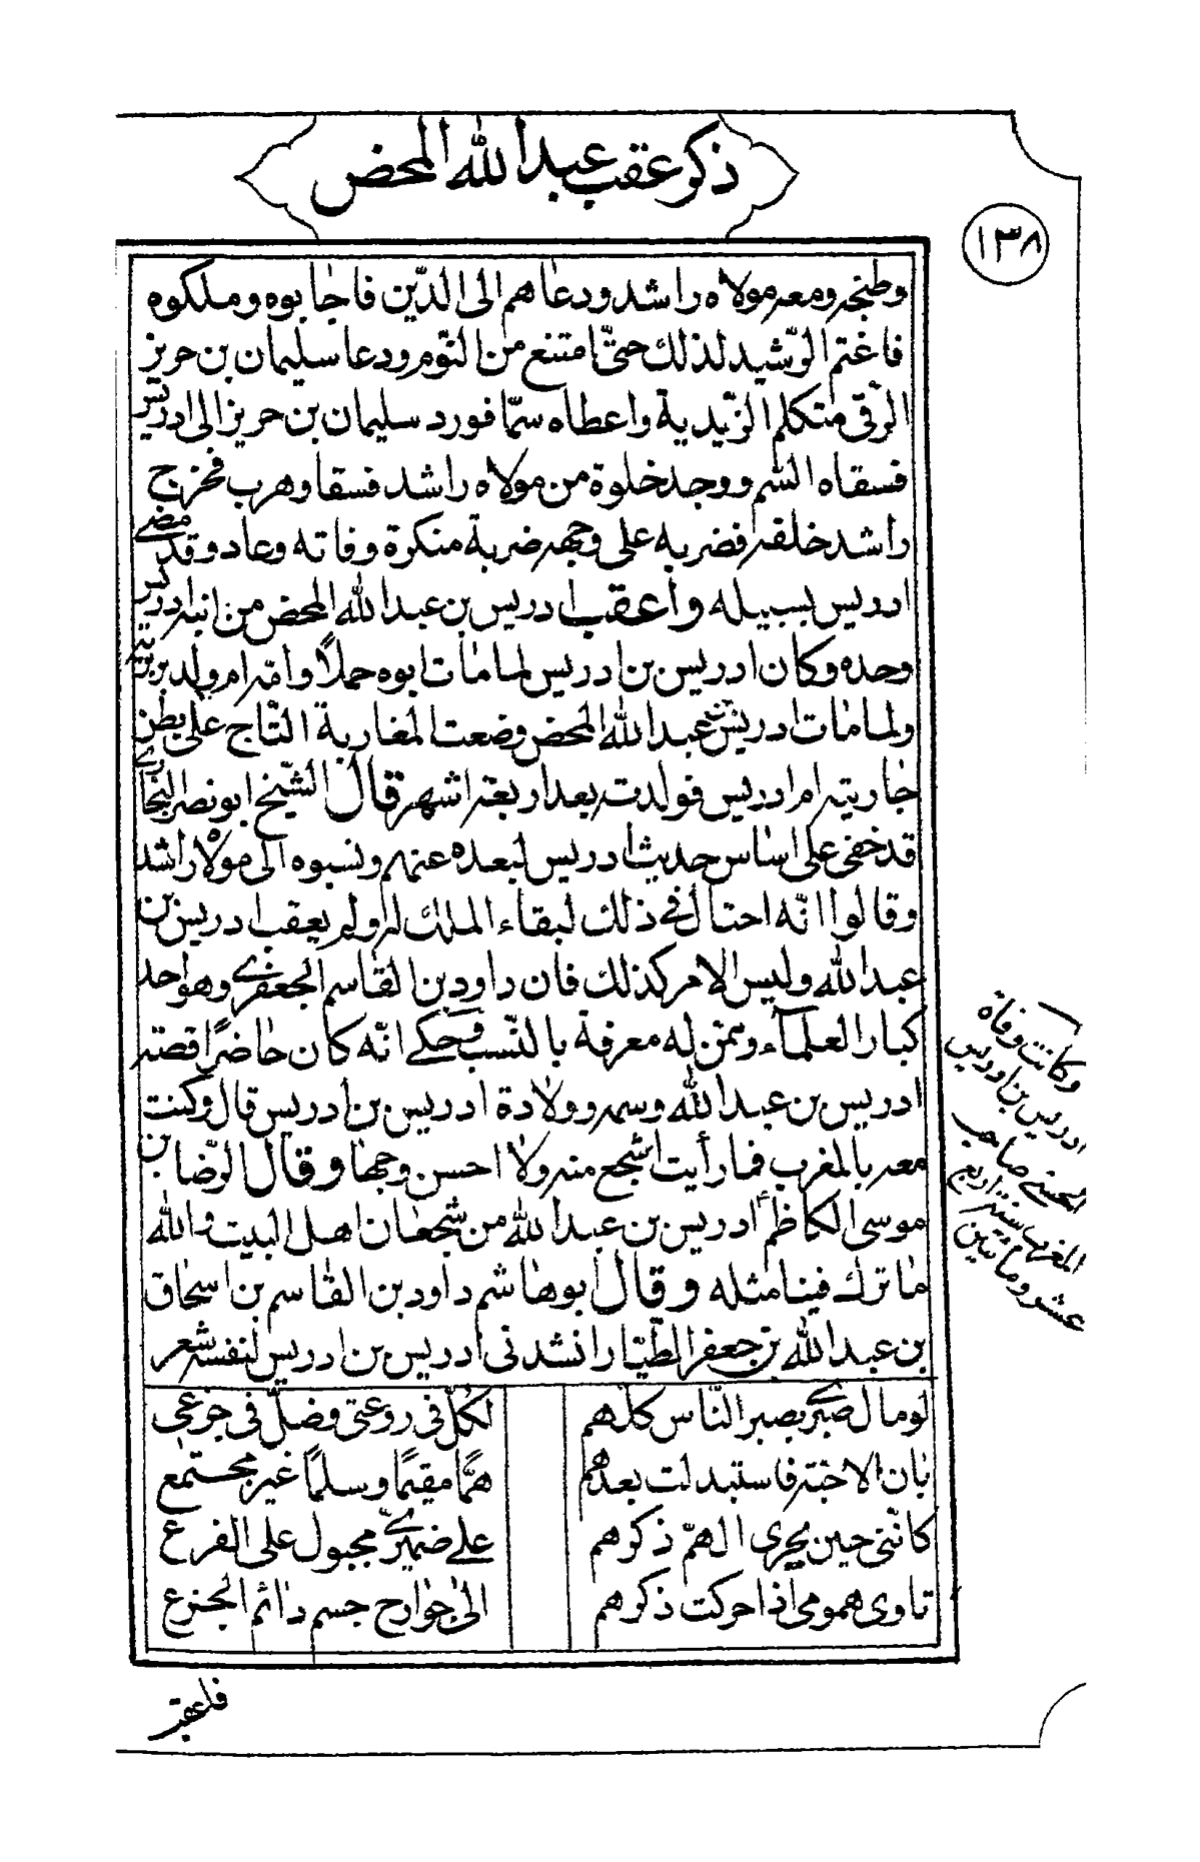 ذكر عقب عبد الله المحض
١٣٨
وطنجه ومعه مولاه راشد ودعاهم الى الدّين فاجابوه وملكوه
فاغتم الرّشيد لذلك حتّى امتنع من النّوم ودعا سليمان بن حريز
الرّقى متكلم الزّيدية واعطاه سمّا فورد سليمان بن حريز الى ادريس
فسقاه السّم ووجد خلوة من مولاه راشد فسقاه وهرب فخرج
راشد خلفه فضربه على وجهه ضربة منكرة وفاته وعاد وقد مضى
ادريس بسبيله واعقب ادريس بن عبد الله المحض من ابنه ادريس
وحده وكان ادريس بن ادريس لما مات ابوه حملاً وامّه ام ولد بربرية
ولما مات ادريس بن عبد الله المحض وضعت المغاربة التّاج على بطن
جاريته ام ادريس فولدته بعد اربعة اشهر قال الشّيخ ابو نصر البخارى
قد خفى على اناس حديث ادريس لبعده عنهم ونسبوه الى مولاه راشد
وقالوا انّه احتال فى ذلك لبقاء الملك له ولم يعقب ادريس بن
عبد الله وليس الامر كذلك فان داود بن القاسم الجعفرى وهو احد
كبار العلمآء وممّن له معرفة بالنّسب حكى انّه كان حاضرًا قصّة
ادريس بن عبد الله وسمه وولادة ادريس بن ادريس قال وكنت
معه بالمغرب فما رأيت اشجع منه ولا احسن وجها وقال الرّضا بن
موسى الكاظم ادريس بن عبد الله من شجعان اهل البيت والله
ما ترك فينا مثله وقال ابو هاشم داود بن القاسم بن اسحاق
بن عبد الله بن جعفر الطّيّار انشدنى ادريس بن ادريس لنفسه شعر
لو مال صبرى بصبر النّاس كلهم لكلّ فى روعتى وضلّ فى جزعى
بان الاحبّة فاستبدلت بعدهم همًّا مقيمًا وسلمًا غير مجتمع
كانّنى حين يجرى الهمّ ذكرهم على ضميرى مجبول على الفزع
تاوى همومى اذا حركت ذكرهم الى جوارح جسم دائم الجزع
وكانت وفاة
ادريس بن ادريس
الحسنى صاحب
المغرب سنة اربع
عشر ومائتين
فاعقب